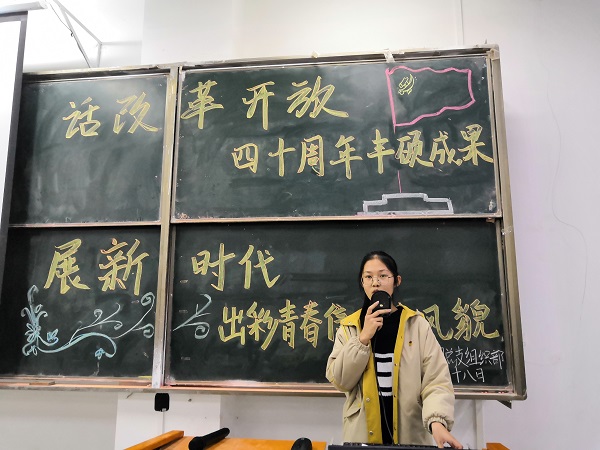 话改革开放
四十周年丰硕成果
展新时代
出彩青春 风貌
支组织部
十八日